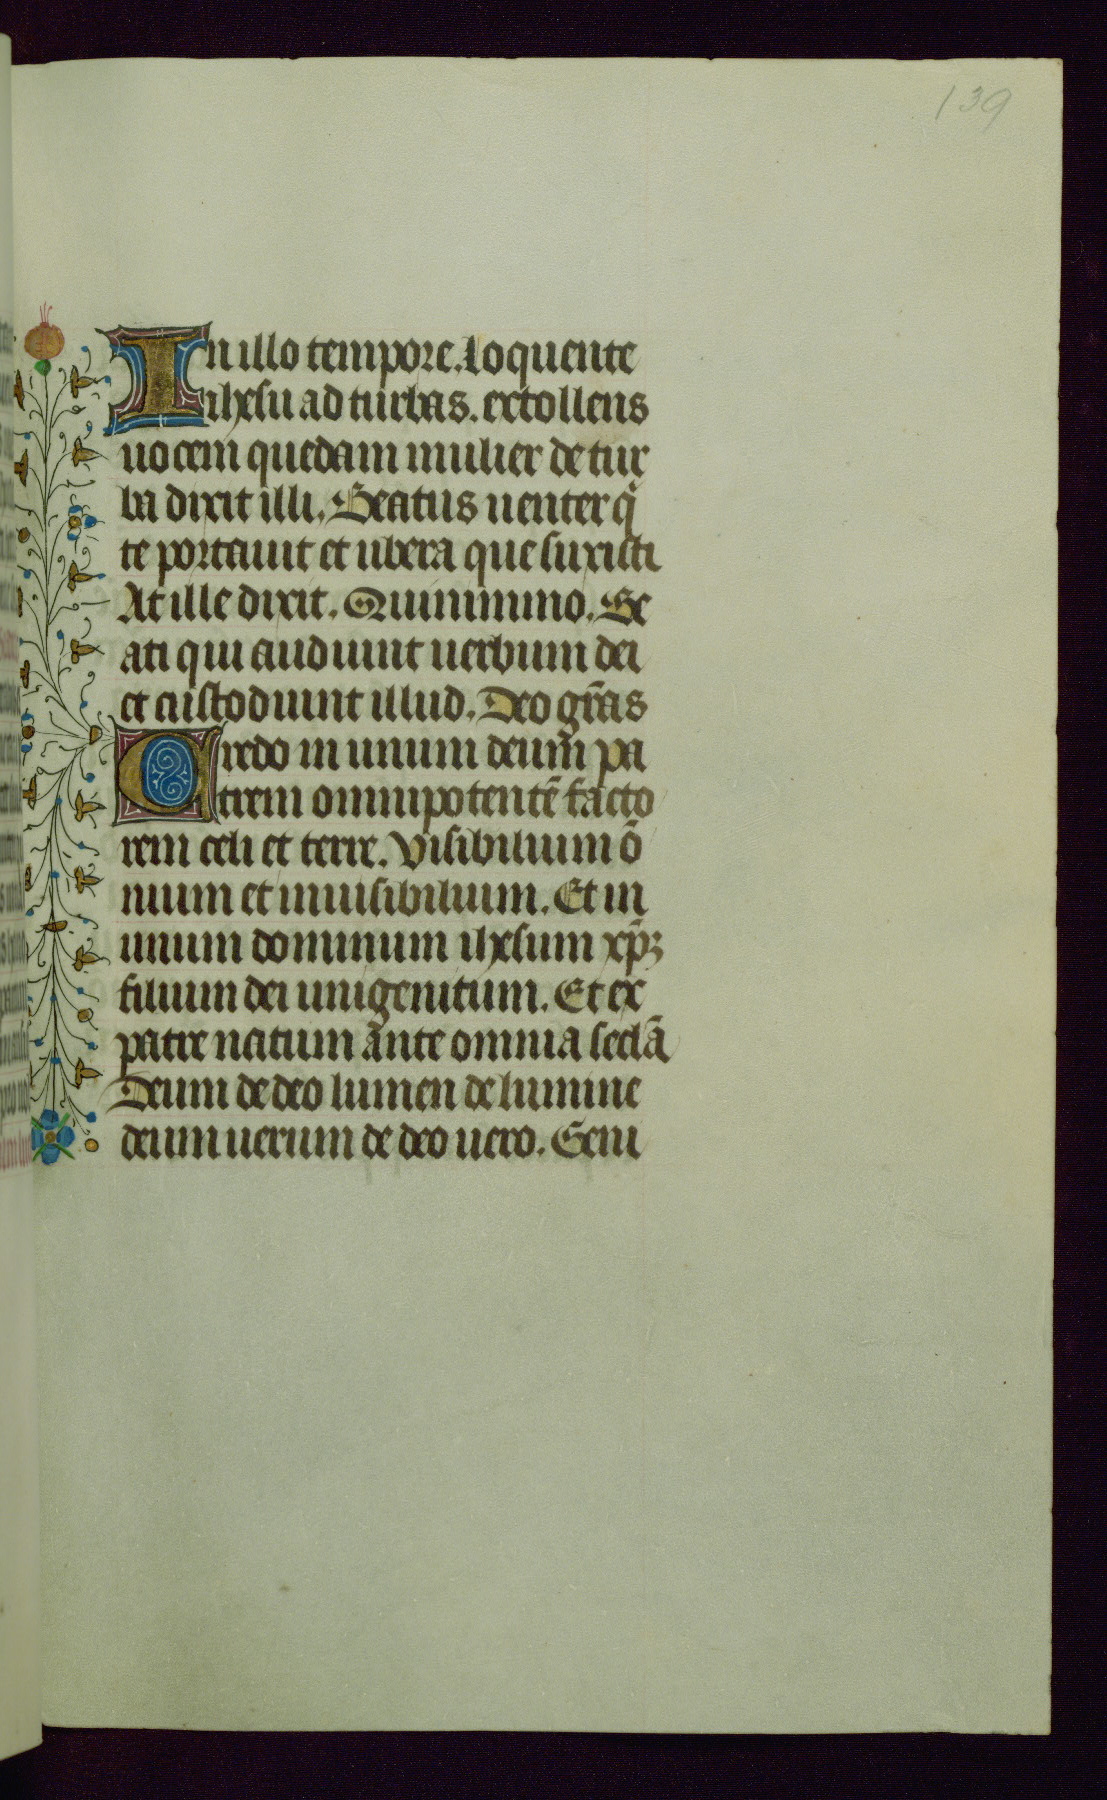 139
In illo tempore. Loquente
ihesu ad turbas. extollens
uocem quedam mulier de tur
ba dixit illi. Beatus uenter q̇
te portauit et ubera que suxisti
At ille dixit. Quinimmo. Be
ati qui audiunt uerbum dei
et custodiunt illud. Deo gr̄as
Credo in unum deum pa
trem omnipotentē facto
rem celi et terre. Visibilium ō
nium et inuisibilium. Et in
unum dominum ihesum xp̄ꝫ
filium dei unigenitum. Et ex
patre natum ante omnia secl̄a
Deum de deo lumen de lumine
deum uerum de deo uero. Geni